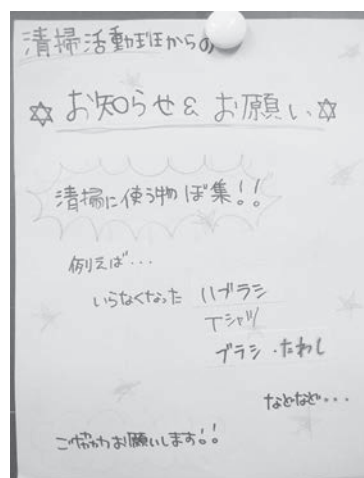 清掃活動班からの
☆ お知らせ & お願い ☆
清掃に使う物ぼ集!!
例えば・・・
いらなくなった ハブラシ
Tシャツ
ブラシ・たわし
などなど・・・
ご協力お願いします!!